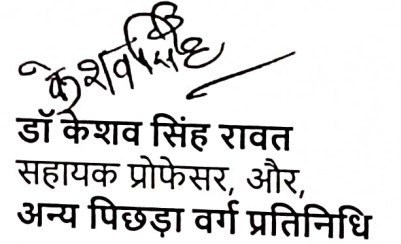 केशव सिंह
डॉ केशव सिंह रावत
सहायक प्रोफेसर, और,
अन्य पिछड़ा वर्ग प्रतिनिधि